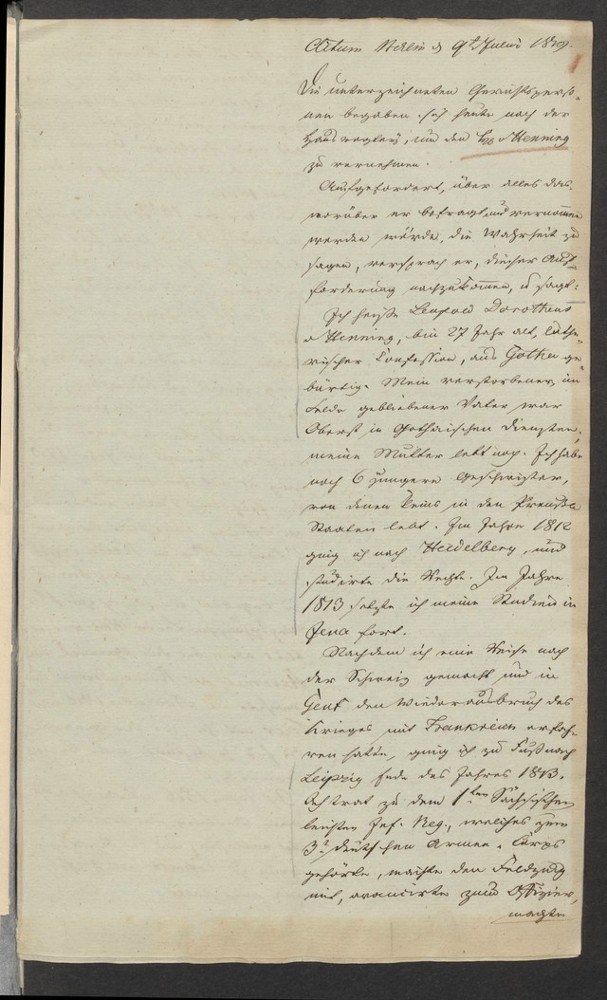 Actum Berlin d 9t Julius 1819.
Die unterzeichneten Gerichtsperso-
nen begaben sich heute nach der
Hausvogtey, um den v Henning
zu vernehmen.
Aufgefordert, über alles das,
worüber er befragt und vernommen
werden würde, die Wahrheit zu
sagen, versprach er, dieser Auf-
forderung nachzukommen, u sagt:
Ich heiße Leopold Dorotheus
v Henning, bin 27 Jahr alt, luthe-
rischer Confession, aus Gotha ge-
bürtig. Mein verstorbener, im
Felde gebliebener Vater war
Oberst in Gothaischen Diensten,
meine Mutter lebt noch. Ich habe
noch 6 jüngere Geschwister,
von denen keins in den Preuß
Staaten lebt. Im Jahre 1812
ging ich nach Heidelberg, und
studirte die Rechte. Im Jahre
1813 setzte ich meine Studien in
Jena fort.
Nachdem ich eine Reise nach
der Schweiz gemacht und in
Genf den Wiederausbruch des
Krieges mit Frankreich erfah-
ren hatte, ging ich zu Fuß nach
Leipzig Ende des Jahres 1813.
Ich trat zu dem 1ten Sächsischen
leichten Inf. Reg., welches zum
3t deutschen Armee-Corps
gehörte, machte den Feldzug
mit, avancirte zum Offizier,
machte